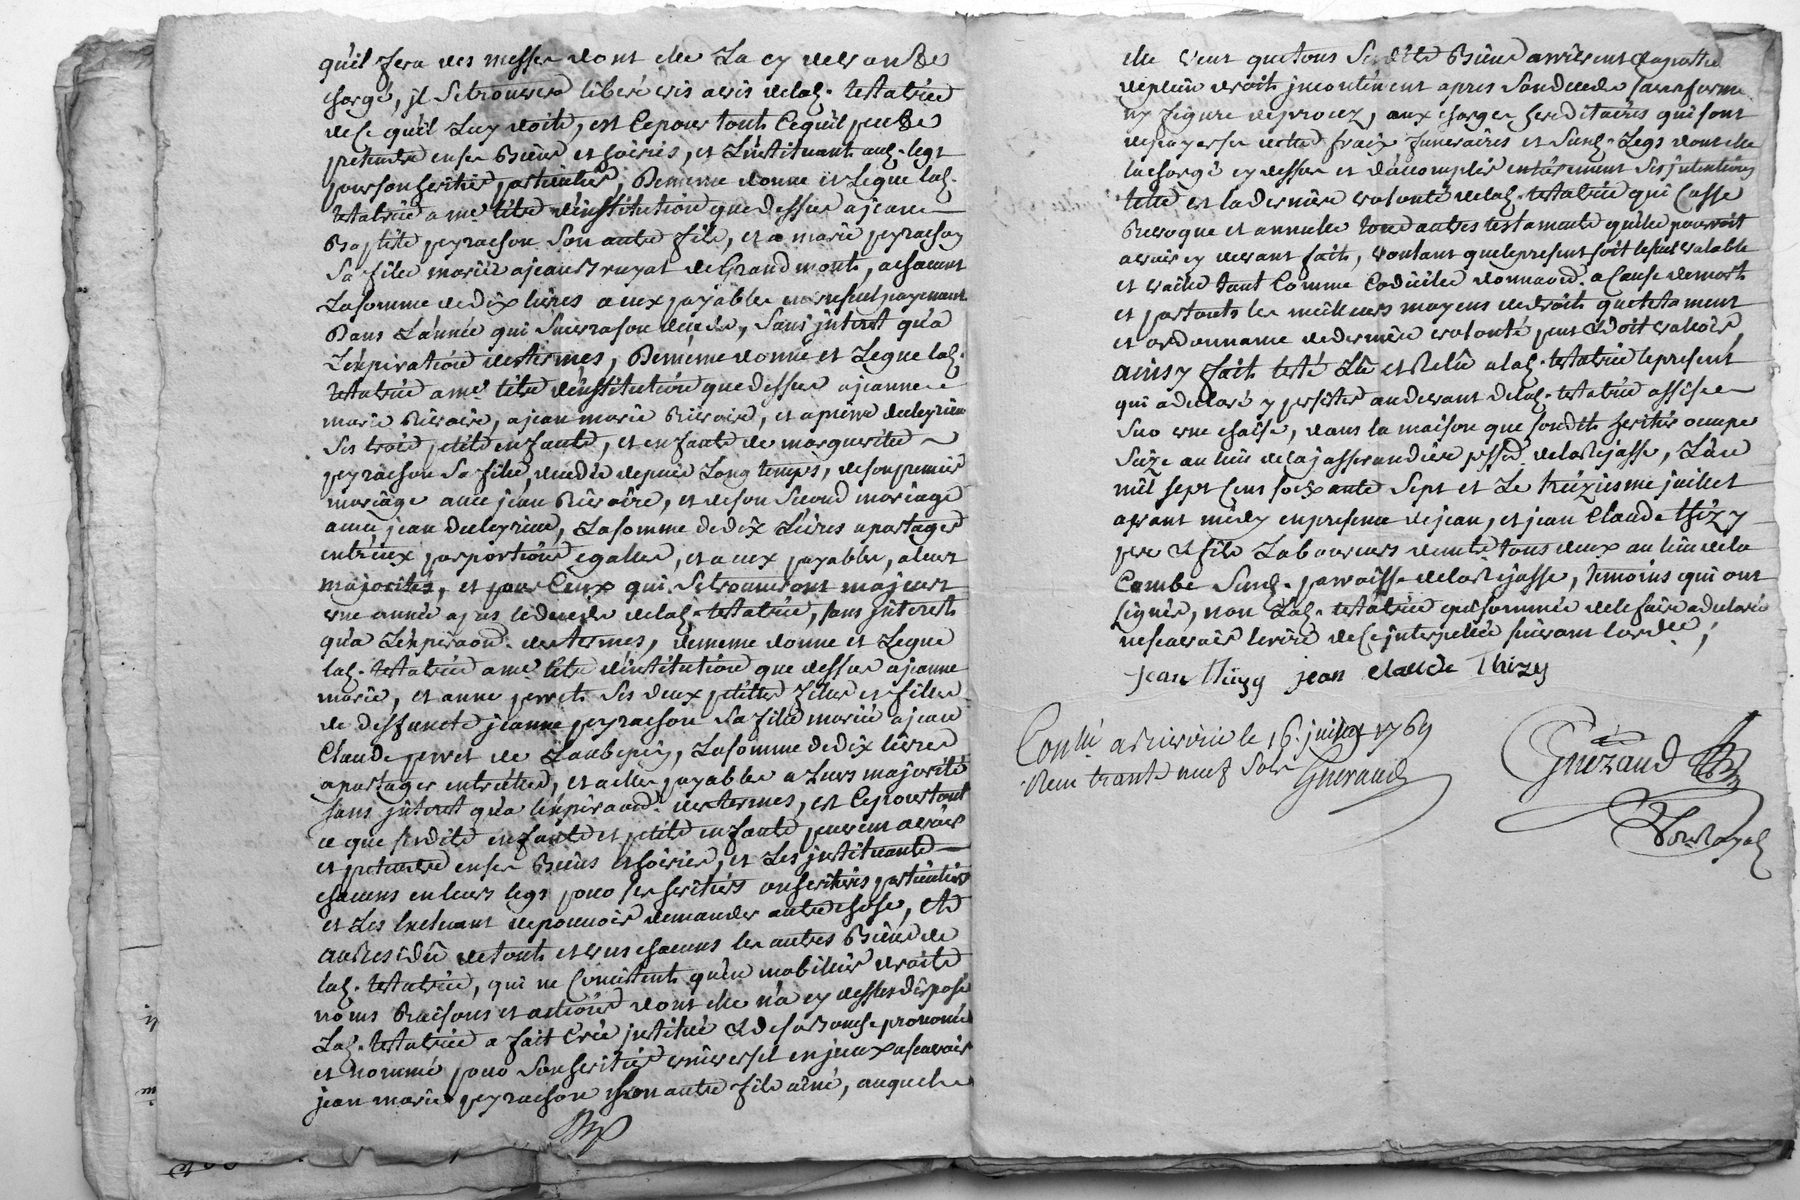 qu'il fera des messes dont elle La cy devant
chargé, jl Setrouvera liberé vis avis delad. testatrice
dece qu'il Luy doit, et cepour tout cequil peut
pretendre enses Biens et hoirie, et L'instituant aud. legs
pourson heritier particulier, Dememe donne et Legue lad.
testatrice a me. titre d'institution que dessus ajean
Baptiste peyrachon Son autre fils, et a marie peyrachon
Sa fille mariée ajean Bruyat de Grandmont, achacun
Lasomme dedix livres a eux payable en unseul payement
Dans L'année qui Suivrason decedz, Sans jnterest qu'a
L'expiration destermes, Dememe donne et Legue lad.
testatrice a me. titre d'institution que dessus ajeanne
marie Rivoire, ajean marie Rivoire, et apierre
Ses trois petits enfants, et enfants de margueritte
peyrachon Sa fille, decedée depuis Long temps, desonpremier
mariage avec jean Rivoire, et deson Second mariage
avec jean, Lasomme dedix Livres apartager
entr'eux parportions egalles, et a eux payable, aleurs
majorités, et pour Ceux qui Setrouveront majeurs
une année apres ledeceds delad. testatrice, sans jnterest
qu'a L'expiraon. destermes, dememe donne et Legue
lad. testatrice a me. titre d'institution que dessus ajeanne
marie, et anne perret Ses deux petittes filles et filles
de deffuncte jeanne peyrachon Sa fille mariée ajean
Claude perret de Laubepin, Lasomme dedix livres
apartager entr'elles, et aelles payable a Leurs majorité
sans jnterest qu'a l'expiraon. destermes, et cepourtout
ce que sesdits enfants et petits enfants peuvent avoir
et pretendre enses Biens et hoirie, et Les jnstituants
chacuns enleurs legs pour ses heritiers particuliers
et Les Excluant depouvoir demander autre chose, Et
au Residu detouts et uns chacuns les autres Biens de
lad. testatrice, qui ne Consistent qu'en mobiliers droits
noms Raisons et actions dont elle n'a cy dessus disposé
Lad. testatrice a fait Créé jnstitué Et desa Bouche prononcé
et nommé pour Son heritier universel
jean marie peyrachon Son autre fils ainé, auquel
elle veut quetous Sesdits Biens arrivent
depleins droits jncontinent apres Sondeceds sans forme
ny figure deprocez, aux charges hereditaires quisont
depayer ses dettes fraix funeraires et Susd. Legs dont elle
la chargé cy dessus et d'accomplir entierement Ses jntentions
telle est laderniere volonté delad. testatrice qui Casse
Revoque et annulle tous autres testaments qu'elle pourroit
avoir cy devant fait, voulant quelepresent soit leseul valable
et vaille tant Comme Codicille donnaon. a Cause demort
et partouts les meilleurs moyens dedroit que testament
et ordonnance dederniere volonté peut Et doit valoir
ainsy fait testé Lû et Relû alad. testatrice lepresent
qui a declaré y persister audevant delad. testatrice assise
Sur une chaise, dans la maison que sondit heritier occupe
Size au lieu delajasserandiere delaRajasse, L'an
mil sept cent soixante Sept et Le treiziesme juillet
avant midy enpresence dejean, et jean Claude thizy
pere Et fils Laboureurs demts. tous deux au lieu dela
Combe Susd. parroisse delaRajasse, temoins qui ont
signés, non Lad. testatrice quisommée delefaire adeclaré
nescavoir écrire dece jnterpellée suivant l'orde. ;
jean thizy jean claude Thizy
Conllé ariverie le 16. juillet 1769
Recu trante neuf Sols Gueraud
Guerand